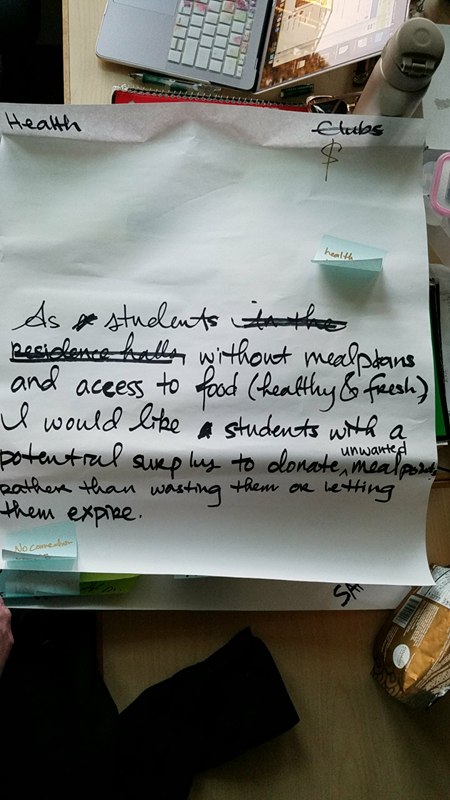 Health
Clubs
$
health
As students in the
residence halls, without mealplans
and access to food (healthy & fresh)
I would like students with a
unwanted
potential surplus to donate meal
rather than wasting them or letting
them expire.
No connection
SA